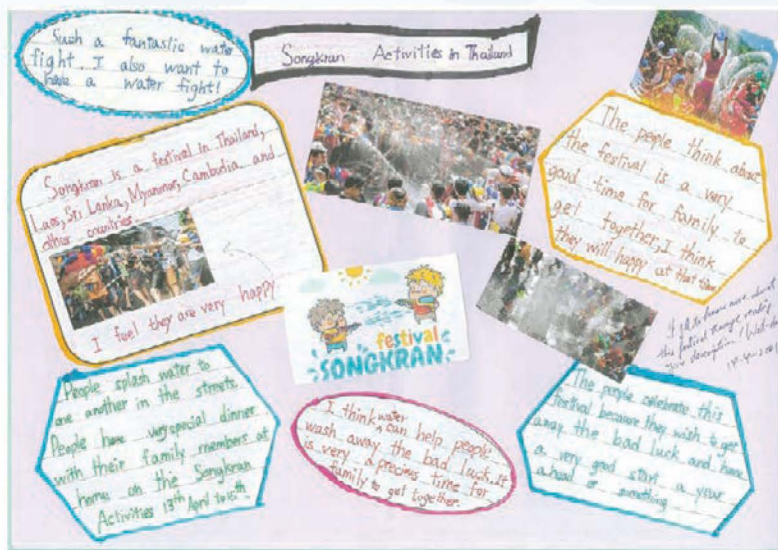 Such a fantastic water
fight. I also want to
have a water fight!
Songkran Activities in Thailand
Songkran is a festival in Thailand,
Laos, Sri Lanka, Myanmar, Cambodia and
other countries
I feel they are very happy
The people think about
the festival is a very
good time for family to
get together, I think
they will happy at that time
festival
SONGKRAN
this festival
your description
People splash water to
one another in the streets.
People have very special dinner
with their family members at
home on the Songkran
Activities 13th April to 15th.
I think water can help people
wash away the bad luck. it
is very a precious time for
family to get together.
The people celebrate this
festival because they wish to get
away the bad luck and have
a very good start a year
ahead or something